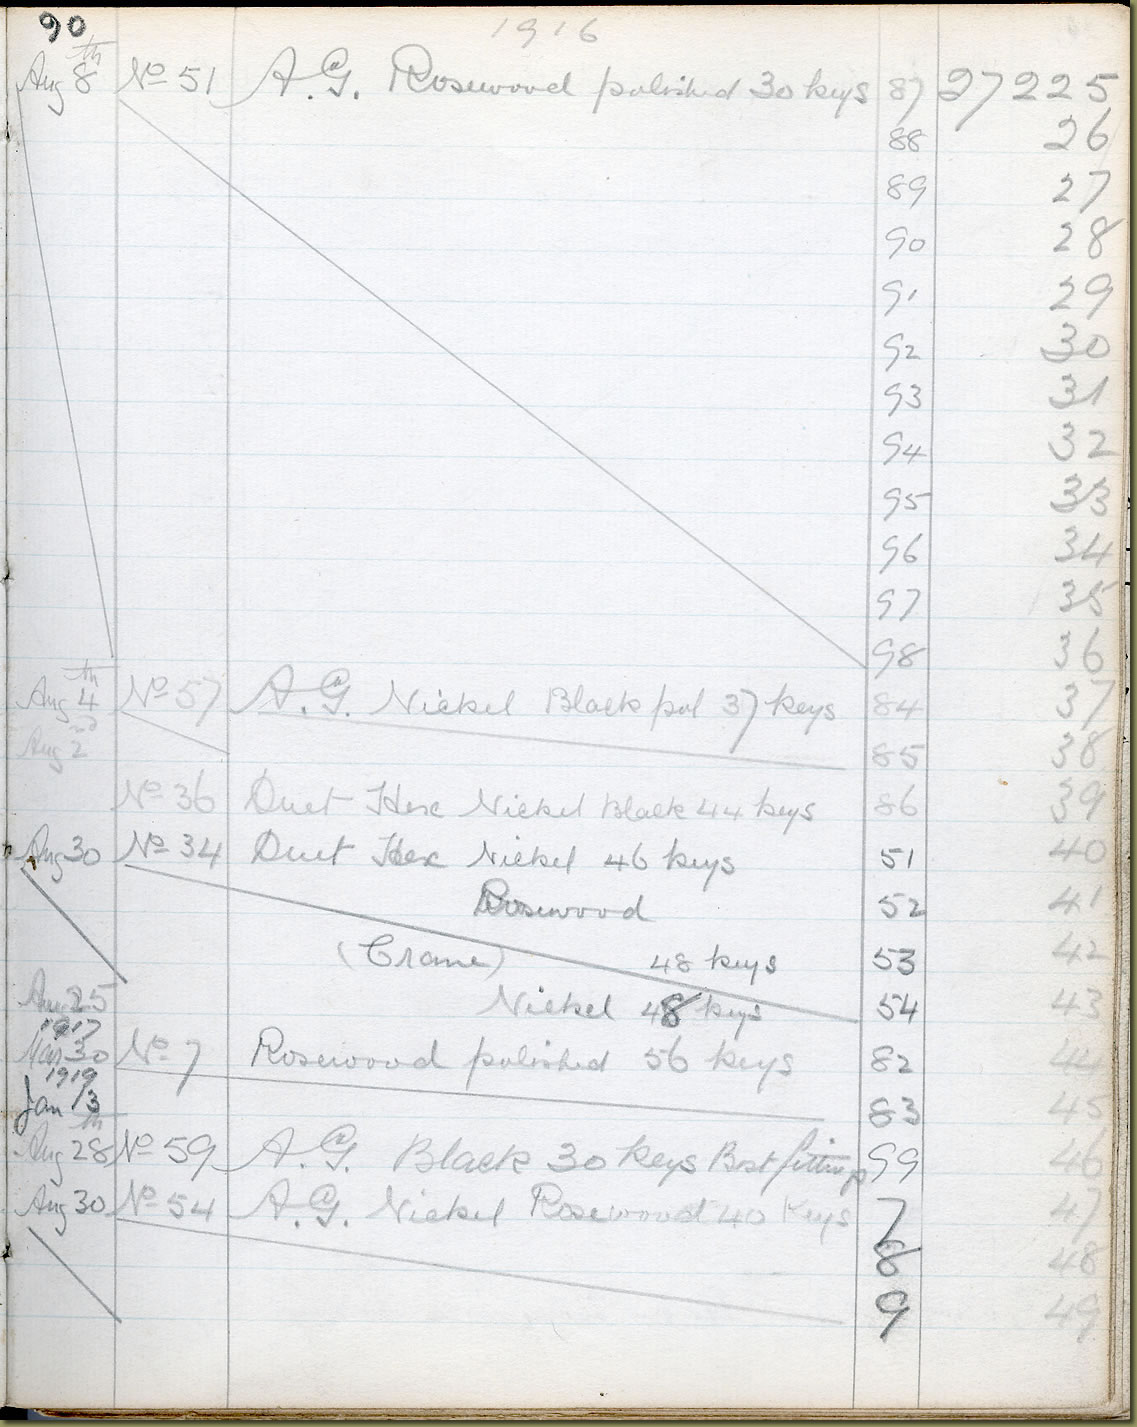 90 1916
Aug 8th No 51 A.G. Rosewood polished 30 keys 87 27225
88 26
89 27
90 28
91 29
92 30
93 31
94 32
95 33
96 34
97 35
98 36
Aug 4th No 57 A.G. Nickel Black pol 37 keys 84 37
Aug 2nd 85 38
No 36 Duet Hex Nickel Black 44 keys 86 39
Aug 30 No 34 Duet Hex Nickel 46 keys 51 40
Rosewood 52 41
(Crane) 48 keys 53 42
Aug 25 Nickel 48 keys 54 43
1917
Mar 30 No 7 Rosewood polished 56 keys 82 44
1919
Jan 13 83 45
Aug 28th No 59 A.G. Black 30 keys Best fittings 99 46
Aug 30 No 54 A.G. Nickel Rosewood 40 Keys 7 47
8 48
9 49